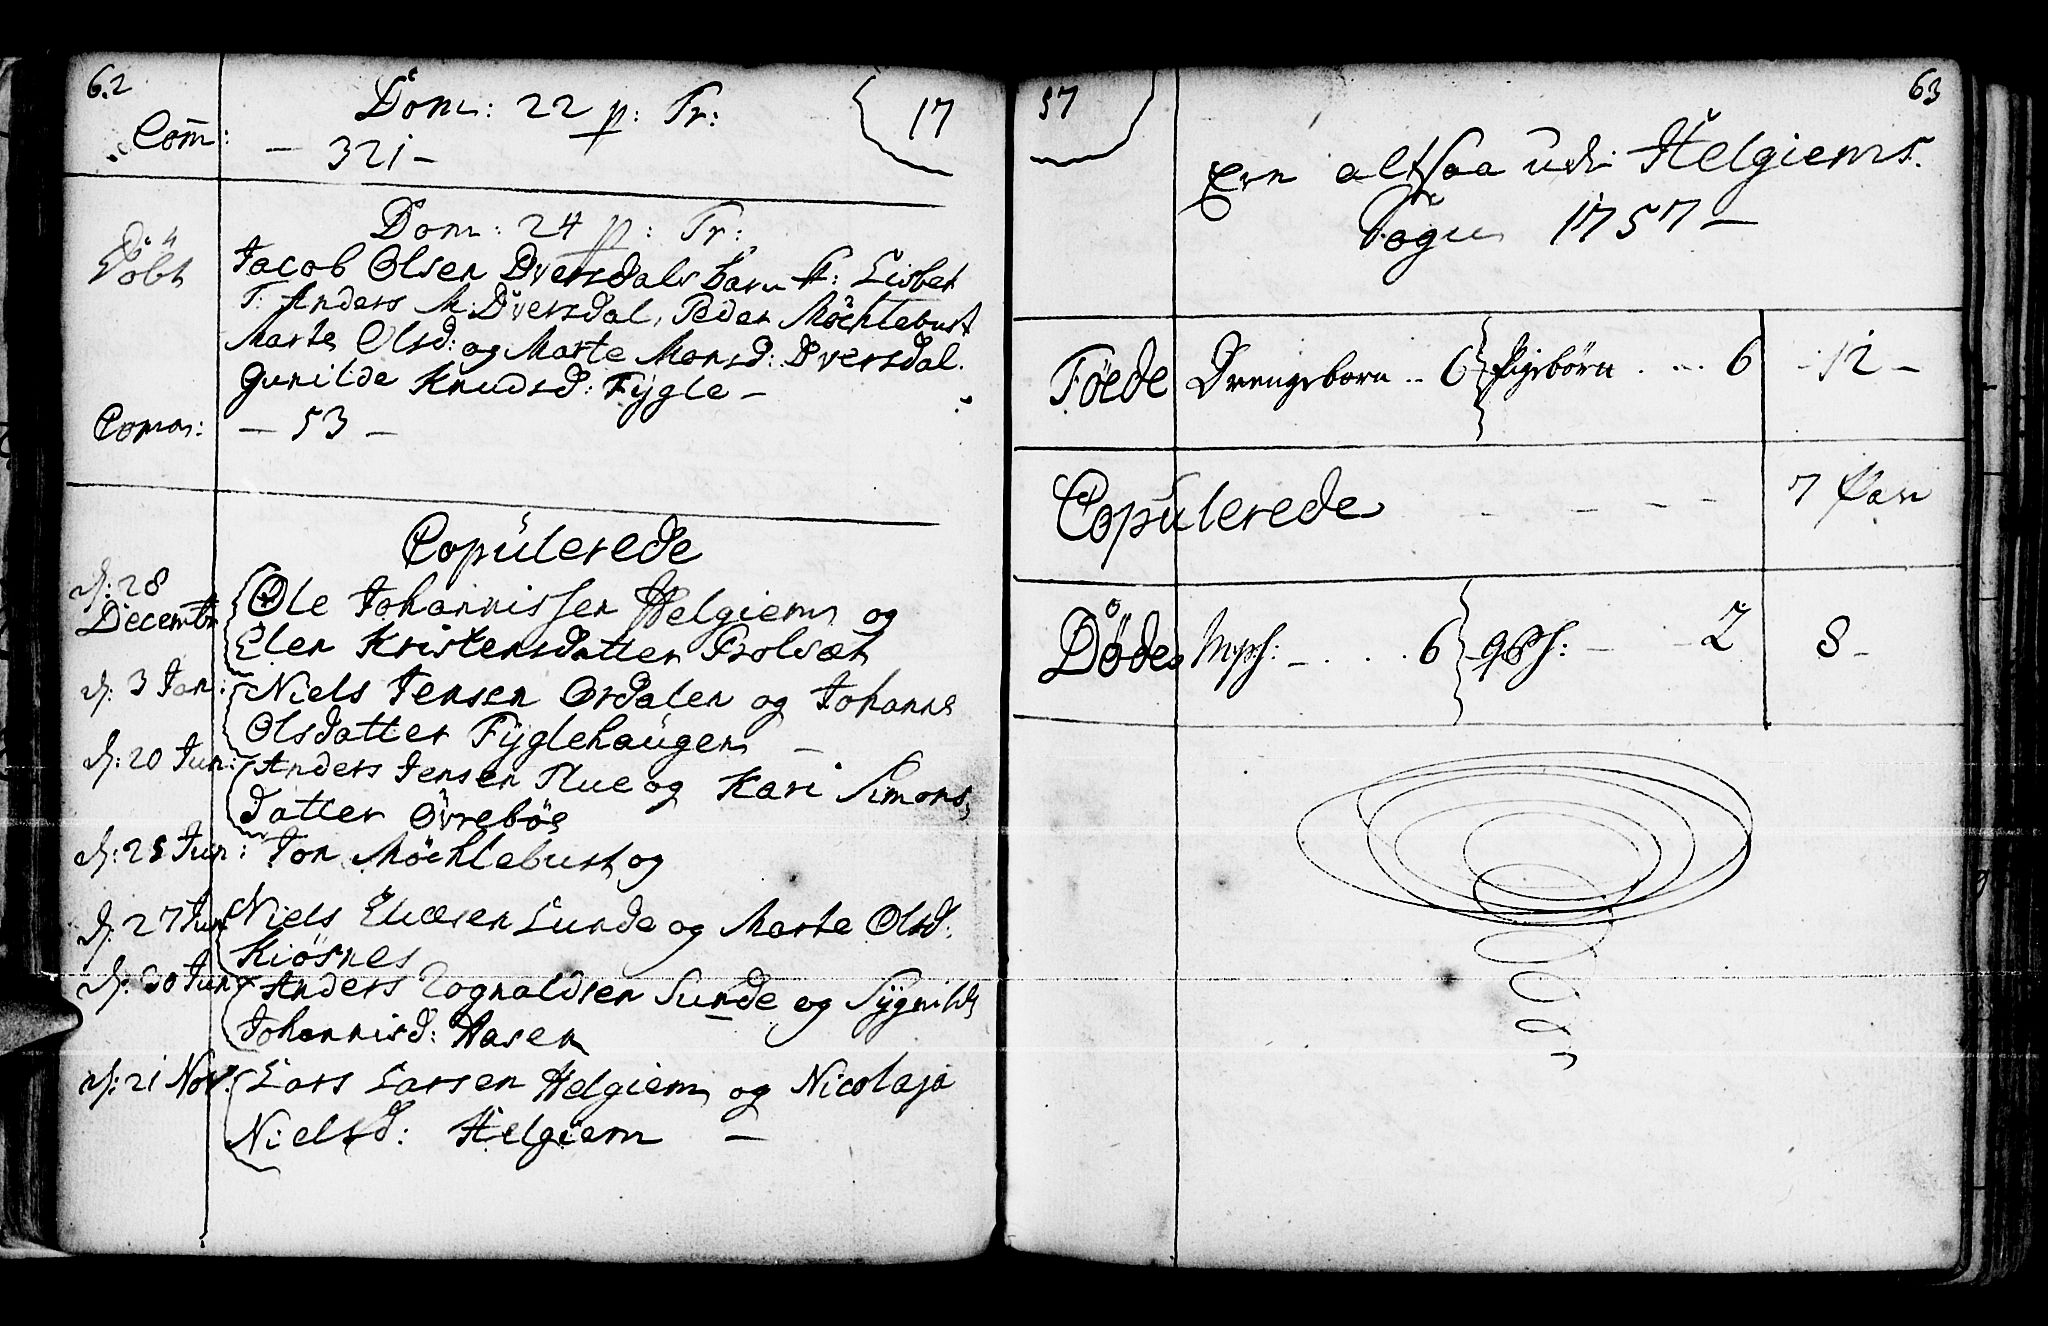 62
Dom: 22 p: Tr:
17
Com̄: — 321 —
Dom: 24 p: Tr:
Döbt Jacob Olsen Dversdals barn N: Lisbet
T: Anders M: Dversdal, Peder Möchlebust
Marte Olsd: og Marte Monsd: Dversdal.
Gunilde Knudsd: Fÿgle —
Comm: — 53 —
Copülerede
d: 28 Decembr Ole Johannissen Helgiem og
Elen Kristensdatter
d: 3 Jan: Niels Jensen Ordalen og Johanne
Olsdatter Fÿglehaügen —
d: 20 Jun: Anders Jensen Flue og Kari Simons
datter Övreböe
d: 25 Jun: Jon Möchlebust og
d: 27 Jun Niels Sunde og Marte Olsd:
Kiösnes
d: 30 Jun Anders Rognaldsen Sunde og Sÿgnilde
Johannisd: Aasen
d: 21 Nov: Lars Larsen Helgiem og Nicolaja
Nielsd: Helgiem —
57
63
Ere altsaa udi Helgiems
Sogn 1757 —
Föede Drengebörn .. 6 Pigebörn . ... 6 - 12 -
Copülerede — — — 7 Par
Döde Msch: — . . . 6 qsch: — — 2 8 -